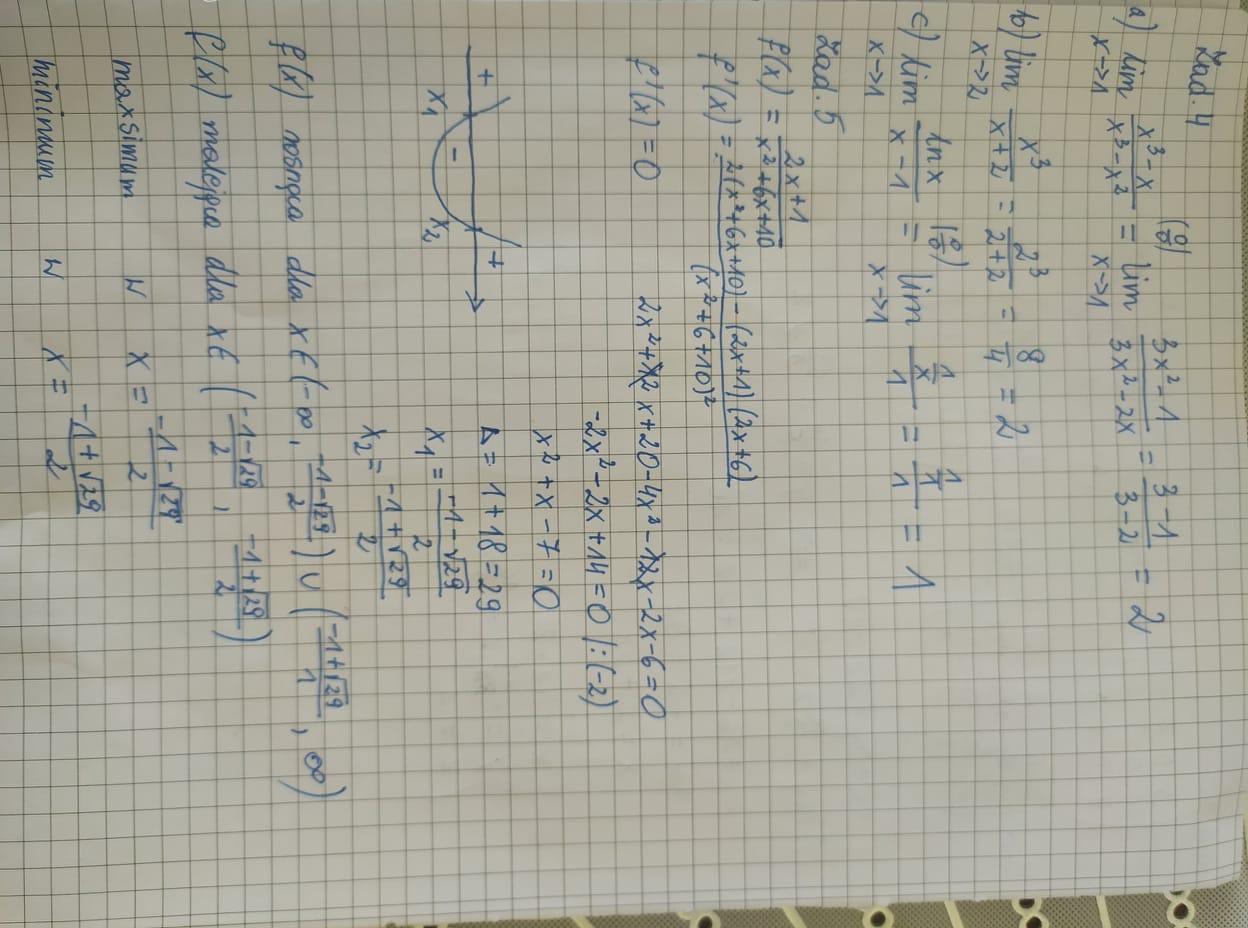 Zad. 4
a) lim x→1 (x³-x)/(x³-x²) (0/0) = lim x→1 (3x²-1)/(3x²-2x) = (3-1)/(3-2) = 2
b) lim x→2 x³/(x+2) = 2³/(2+2) = 8/4 = 2
c) lim x→1 ln x/(x-1) (0/0) = lim x→1 (1/x)/1 = (1/1)/1 = 1
Zad. 5
f(x) = (2x+1)/(x²+6x+10)
f'(x) = (2(x²+6x+10) - (2x+1)(2x+6))/(x²+6+10)²
f'(x) = 0
2x²+12x+20-4x²-12x-2x-6=0
-2x²-2x+14=0 /:(-2)
x²+x-7=0
Δ = 1+18=29
x₁ = (-1-√29)/2
x₂ = (-1+√29)/2
+ x₁ - x₂ +
f(x) rosnąca dla x∈(-∞, (-1-√29)/2) ∪ ((-1+√29)/1, ∞)
f(x) malejąca dla x∈((-1-√29)/2, (-1+√29)/2)
maxsimum w x = (-1-√29)/2
minimum w x = (-1+√29)/2